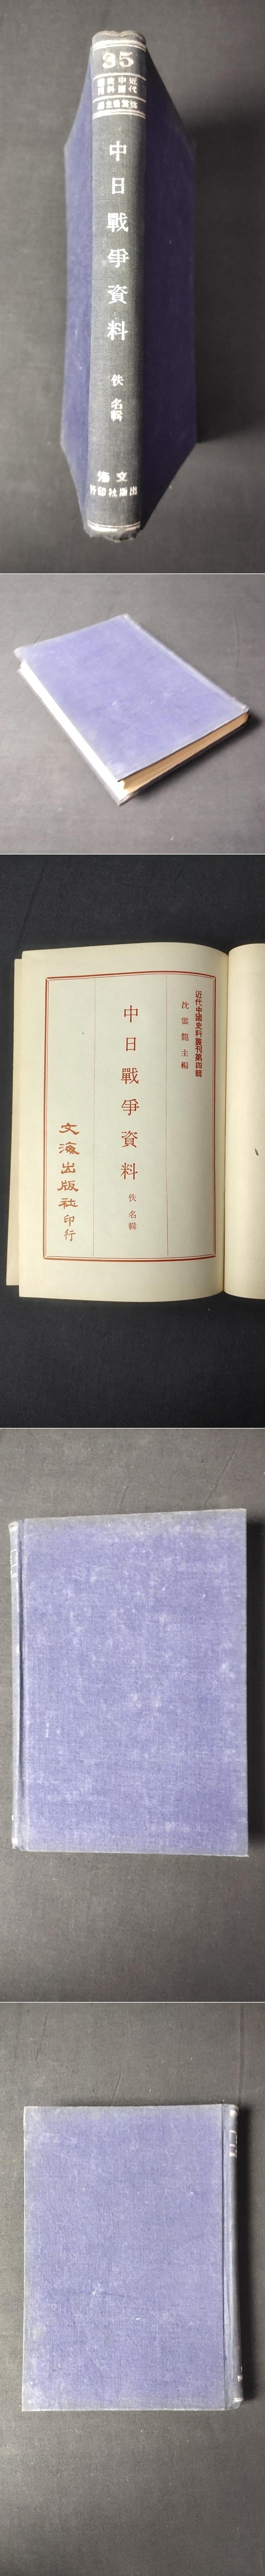 35
近代
中國
史料
叢刊
中日戰爭資料
佚名輯
文海
出版社印行
近代中國史料叢刊第四輯
沈雲龍主編
中日戰爭資料
佚名輯
文海出版社印行